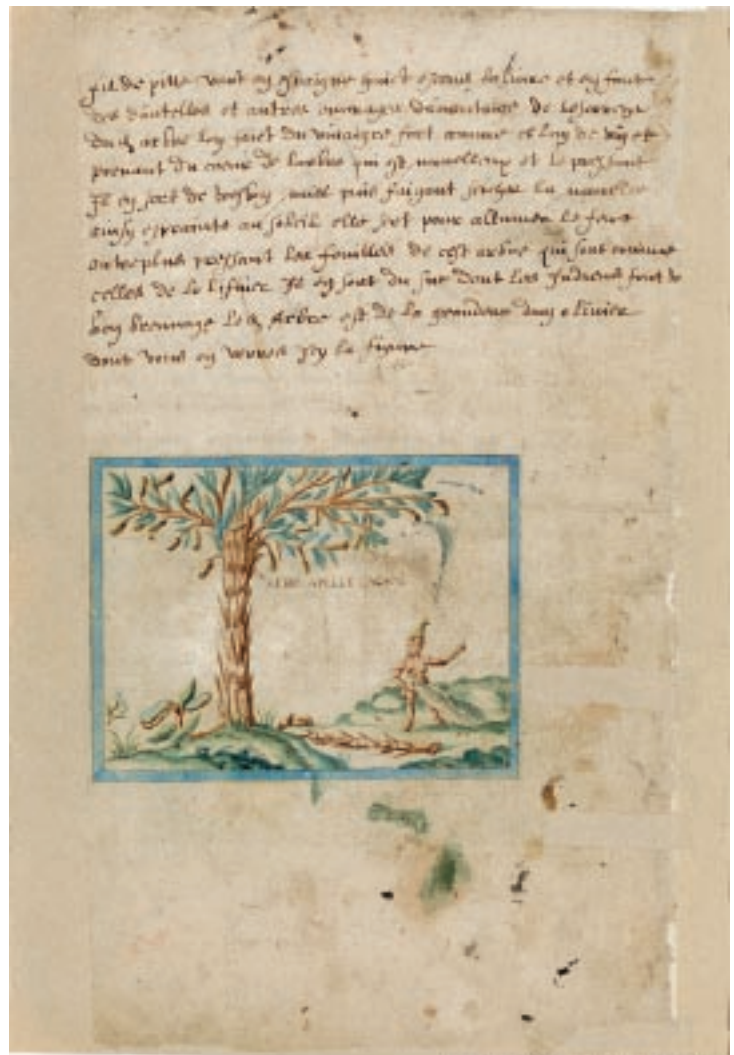 fil de pitte vaut en espaigne escus la livre et en font
des dantelles et autres ouvrages de lescorce
dud arbre lon faict du vinaigre fort comme celuy de vin et
prenant du coeur de larbre qui est mouelleux et le pressant
Il en sort de miel puis faisant secher la mouelle
ainsy esprainte au soleil elle sert pour allumer le feu
outreplus pressant les feuilles de cest arbre qui sont comme
celles de lolivier Il en sort du jus dont les Indiens font
breuvage led Arbre est de la grandeur dun olivier
dont vous en verres Icy la figure